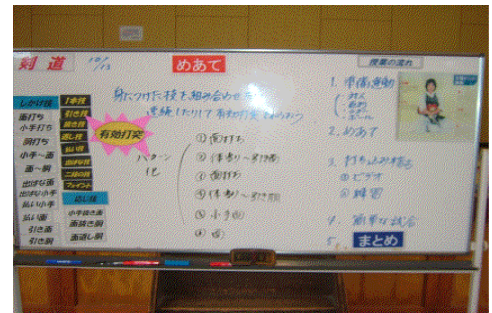 剣道
10/13
めあて
身につけた技を組み合わせ
連続したりして有効打突
しかけ技
面打ち
小手打ち
胴打ち
小手～面
面～胴
出ばな面
出ばな小手
払い小手
払い面
引き面
引き胴
1本技
引き技
抜き技
返し技
払い技
出ばな技
二段の技
フェイント
応じ技
小手抜き面
面抜き胴
面返し胴
有効打突
パターン
化
① 面打ち
② (体当り)～引き面
③ 面打ち
④ (体当り)～引き胴
⑤ 小手面
授業の流れ
1. 準備運動
2. めあて
3. 打ち込み稽古
① ビデオ
② 練習
4. 簡単な試合
5. まとめ